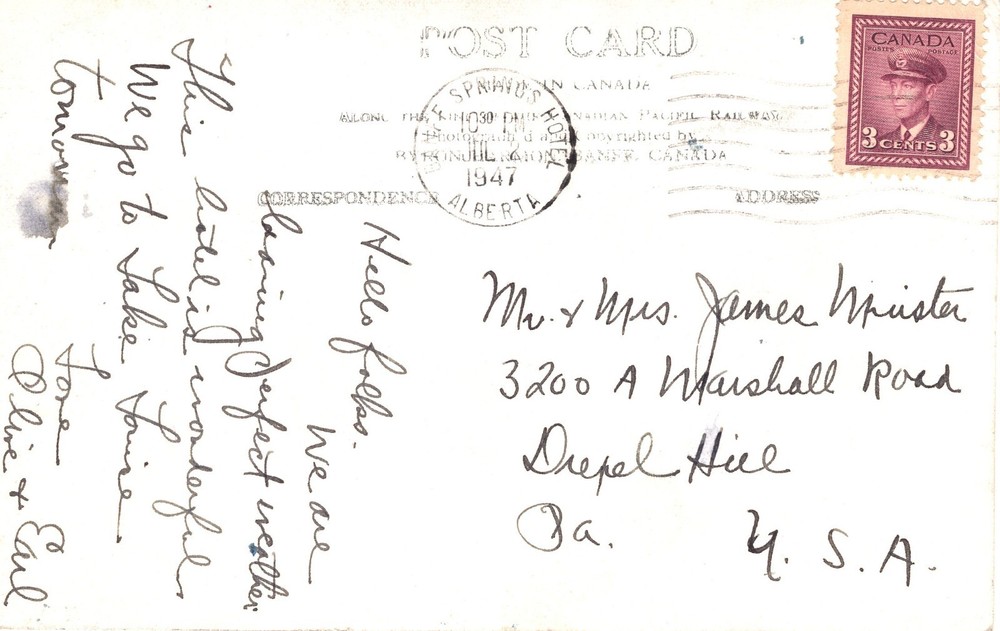 POST CARD
IN CANADA
ALONG THE LINE OF THE CANADIAN PACIFIC RAILWAY
Photographed and Copyrighted by
BYRON HARMON, BANFF, CANADA
CORRESPONDENCE
ADDRESS
SPRINGS HOTEL
10 30 PM
JUL
1947
ALBERTA
CANADA
POSTES POSTAGE
3 CENTS 3
Hello folks.
We are
having perfect weather.
This hotel is wonderful.
We go to Lake Louise
tomorrow
Love
Olive & Earl
Mr. & Mrs. James Minister
3200 A Marshall Road
Drexel Hill
Pa. U. S. A.